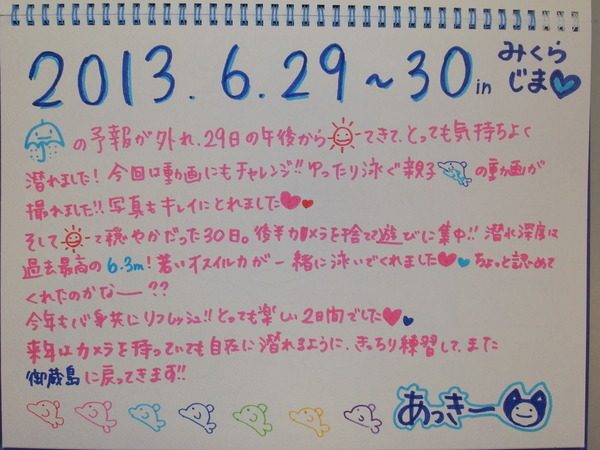 2013.6.29~30 in みくらじま
の予報が外れ、29日の午後から でてきて、とっても気持ちよく
潜れました!今回は動画にもチャレンジ!!ゆったり泳ぐ親子 の動画が
撮れました!!写真もキレイにとれました
そして で穏やかだった30日。後半カメラを捨て遊びに集中!!潜水深度は
過去最高の6.3m!若いオスイルカが一緒に泳いでくれました ちょっと認めて
くれたのかなー??
今年も心身共にリフレッシュ!!とっても楽しい2日間でした
来年はカメラを持っていても自在に潜れるように、きっちり練習して、また
御蔵島に戻ってきます!!
あっきー